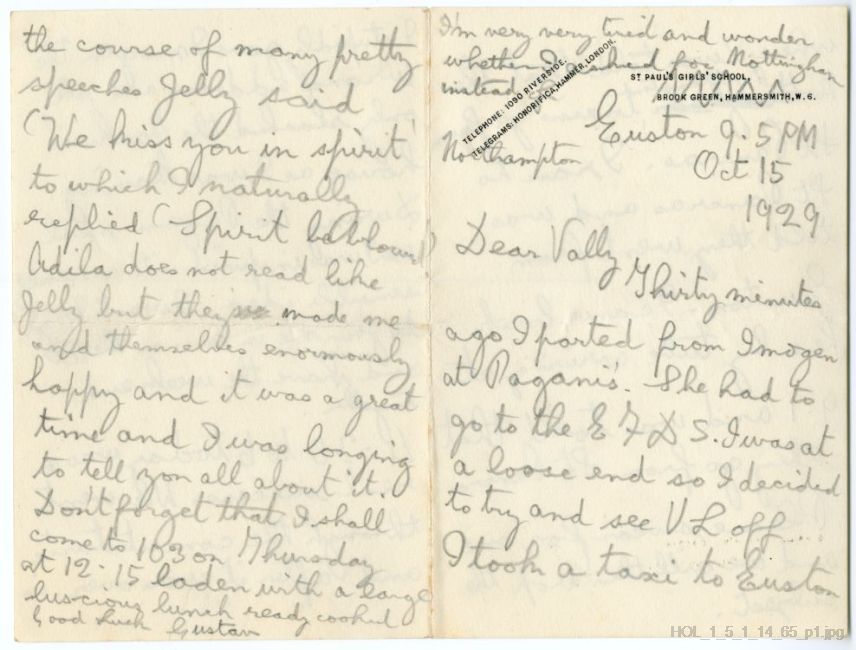 I'm very very tired and wonder
whether I asked for Nottingham
instead of
Northampton
TELEPHONE: 1090 RIVERSIDE.
TELEGRAMS: HONORIFICA, HAMMER, LONDON.
ST PAUL'S GIRLS' SCHOOL,
BROOK GREEN, HAMMERSMITH, W. 6.
Euston 9.5 PM
Oct 15
1929
Dear Vally
Thirty minutes
ago I parted from Imogen
at Paganis'. She had to
go to the E F D S. I was at
a loose end so I decided
to try and see V L off
I took a taxi to Euston
the course of many pretty
speeches Jelly said
'We kiss you in spirit'
to which I naturally
replied 'Spirit be blowed'
Adila does not read like
Jelly but they made me
and themselves enormously
happy and it was a great
time and I was longing
to tell you all about it.
Don't forget that I shall
come to 103 on Thursday
at 12-15 laden with a large
luscious lunch ready cooked
Good luck Gustav
HOL_1_5_1_14_65_p1.jpg